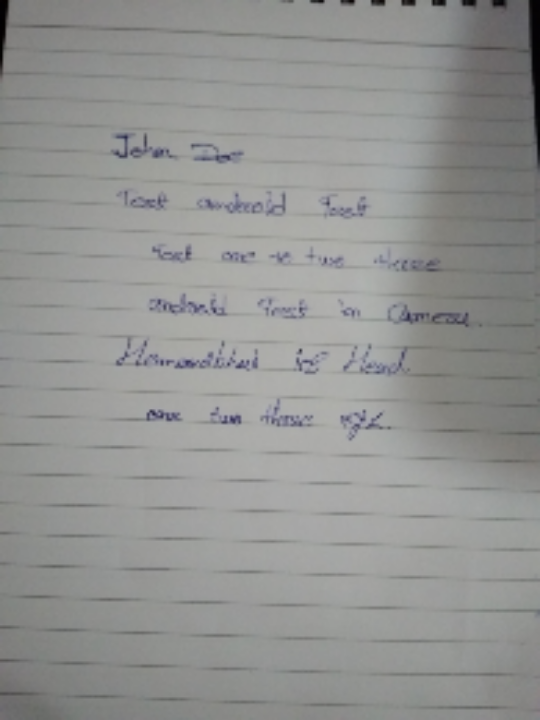 John Doe
Test android Test
Test one to two three
android Test in Camera.
is Head
one two three